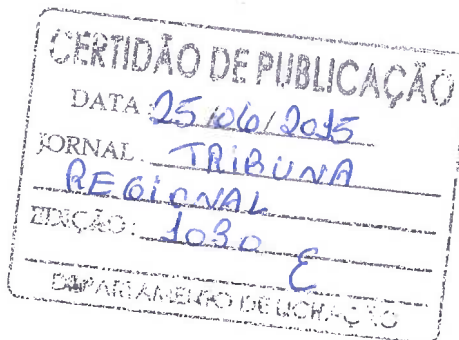 CERTIDÃO DE PUBLICAÇÃO
DATA: 25/06/2015
JORNAL: TRIBUNA
REGIONAL
EDIÇÃO: 1030 E
DEPARTAMENTO DE LICITAÇÃO